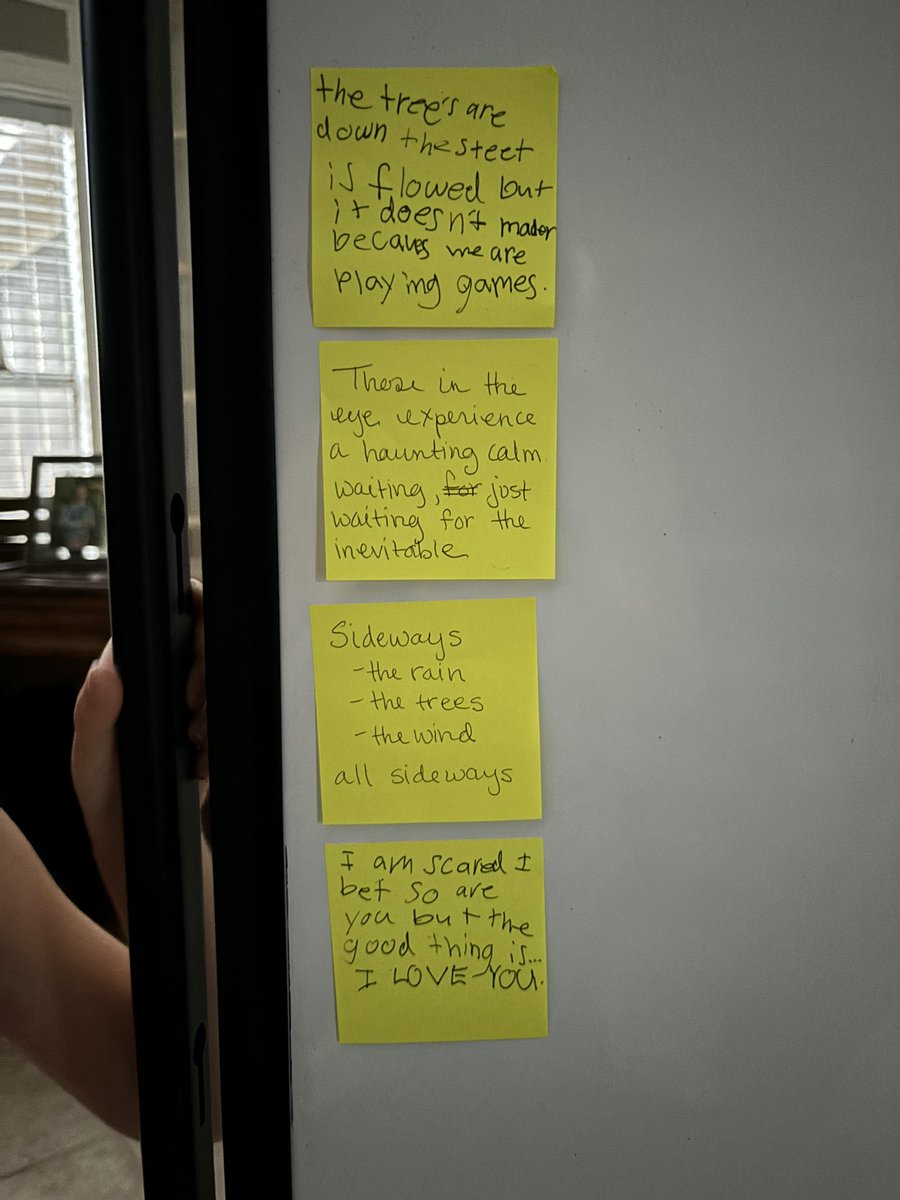 the tree's are
down the steet
is flowed but
it doesn't mader
becaues we are
playing games.
Those in the
eye experience
a haunting calm
waiting, for just
waiting for the
inevitable
Sideways
- the rain
- the trees
- the wind
all sideways
I am scared I
bet so are
you but the
good thing is...
I LOVE YOU.